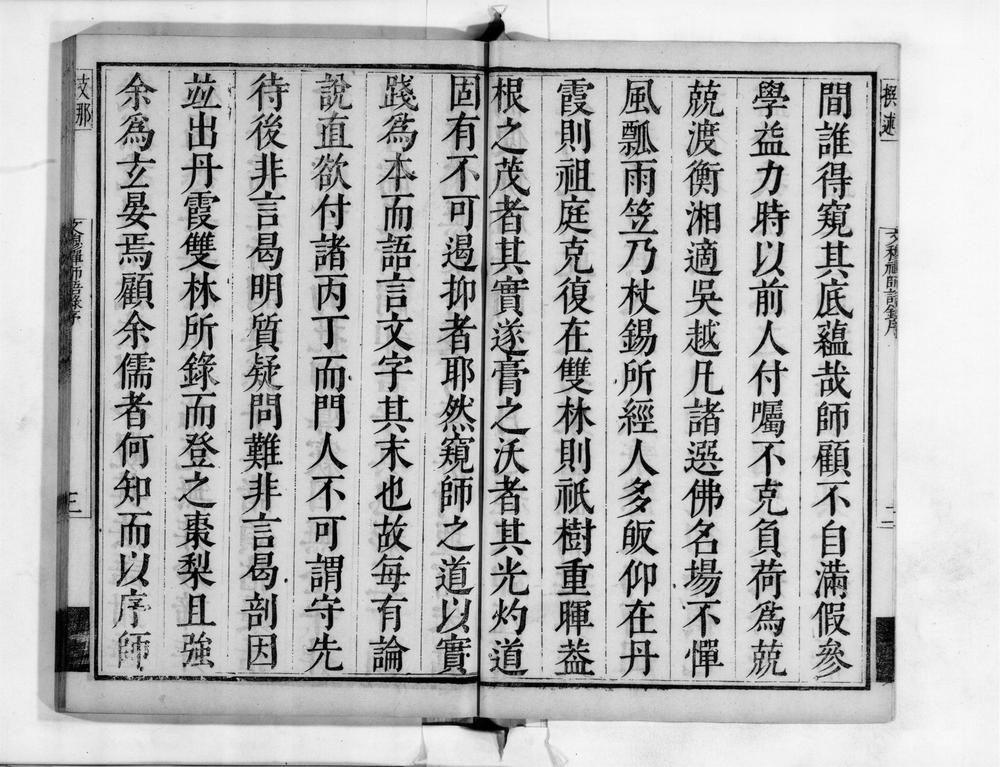 撰述
間誰得窺其底蘊哉師顧不自滿假參
學益力時以前人付囑不克負荷爲兢
兢渡衡湘適吳越凡諸選佛名場不憚
風瓢雨笠乃杖錫所經人多皈仰在丹
霞則祖庭克復在雙林則祇樹重暉葢
根之茂者其實遂膏之沃者其光灼道
固有不可遏抑者耶然窺師之道以實
踐爲本而語言文字其末也故每有論
說直欲付諸丙丁而門人不可謂守先
待後非言曷明質疑問難非言曷剖因
並出丹霞雙林所錄而登之棗梨且強
余爲玄晏焉顧余儒者何知而以序師
支那
禪師語錄序
三